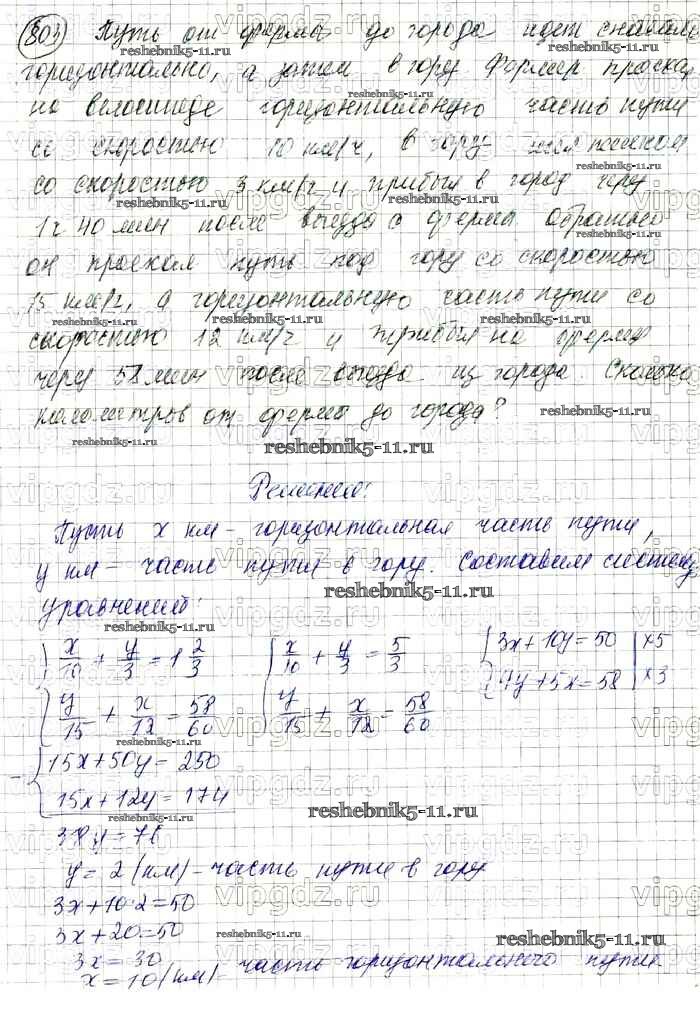 803 Путь от фермы до города идет сначала
горизонтально, а затем в гору. Фермер проехал
на велосипеде горизонтальную часть пути
со скоростью 10 км/ч, в гору - шел пешком
со скоростью 3 км/ч и прибыл в город через
1 ч 40 мин после выезда с фермы. Обратно
он проехал путь под гору со скоростью
15 км/ч, а горизонтальную часть пути со
скоростью 12 км/ч и прибыл на ферму
через 58 мин после выезда из города. Сколько
километров от фермы до города?
reshebnik5-11.ru
Решение:
Пусть x км - горизонтальная часть пути,
y км - часть пути в гору. Составим систему
уравнений:
x/10 + y/3 = 1 2/3   x/10 + y/3 = 5/3   3x + 10y = 50 | ×5
y/15 + x/12 = 58/60   y/15 + x/12 = 58/60   4y + 5x = 58 | ×3
- 15x + 50y = 250
15x + 12y = 174
38y = 76
y = 2 (км) - часть пути в гору
3x + 10·2 = 50
3x + 20 = 50
3x = 30
x = 10 (км) - часть горизонтального пути
vipgdz.ru